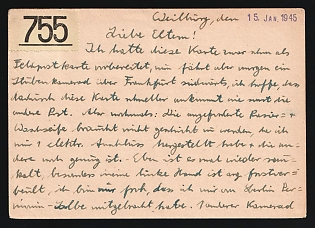 755
Weilburg, den 15. JAN. 1945
Liebe Eltern!
Ich hatte diese Karte zwar schon als
Feldpostkarte vorbereitet, nun fährt aber morgen ein
Stubenkamerad über Frankfurt südwärts, ich hoffe, dass
dadurch diese Karte schneller ankommt wie sonst die
andere Post. Aber nochmals: die angeforderte Rasier- +
Waschseife braucht nicht geschickt zu werden, da ich
mir 1 elektr. Anschluss hergestellt habe + die an-
dere noch genug ist. Eben ist es mal wieder sau-
kalt, besonders meine linke Hand ist arg frostver-
beult, ich bin nur froh, dass ich mir von Berlin
salbe mitgebracht habe. 1 anderer Kamerad